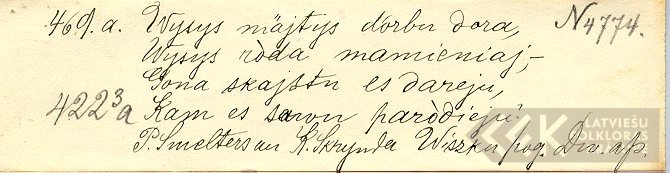 469. a. Wysys mäjtys dorbu dora, N4774.
Wysys ròda mamieniaj,–
Gona skajstu es dareju,
422³a Kam es sawu paròdieju.
P. Smelters un K. Skrynda Wiszku pog. Dw. apr.
LATVIEŠU
FOLKLORAS